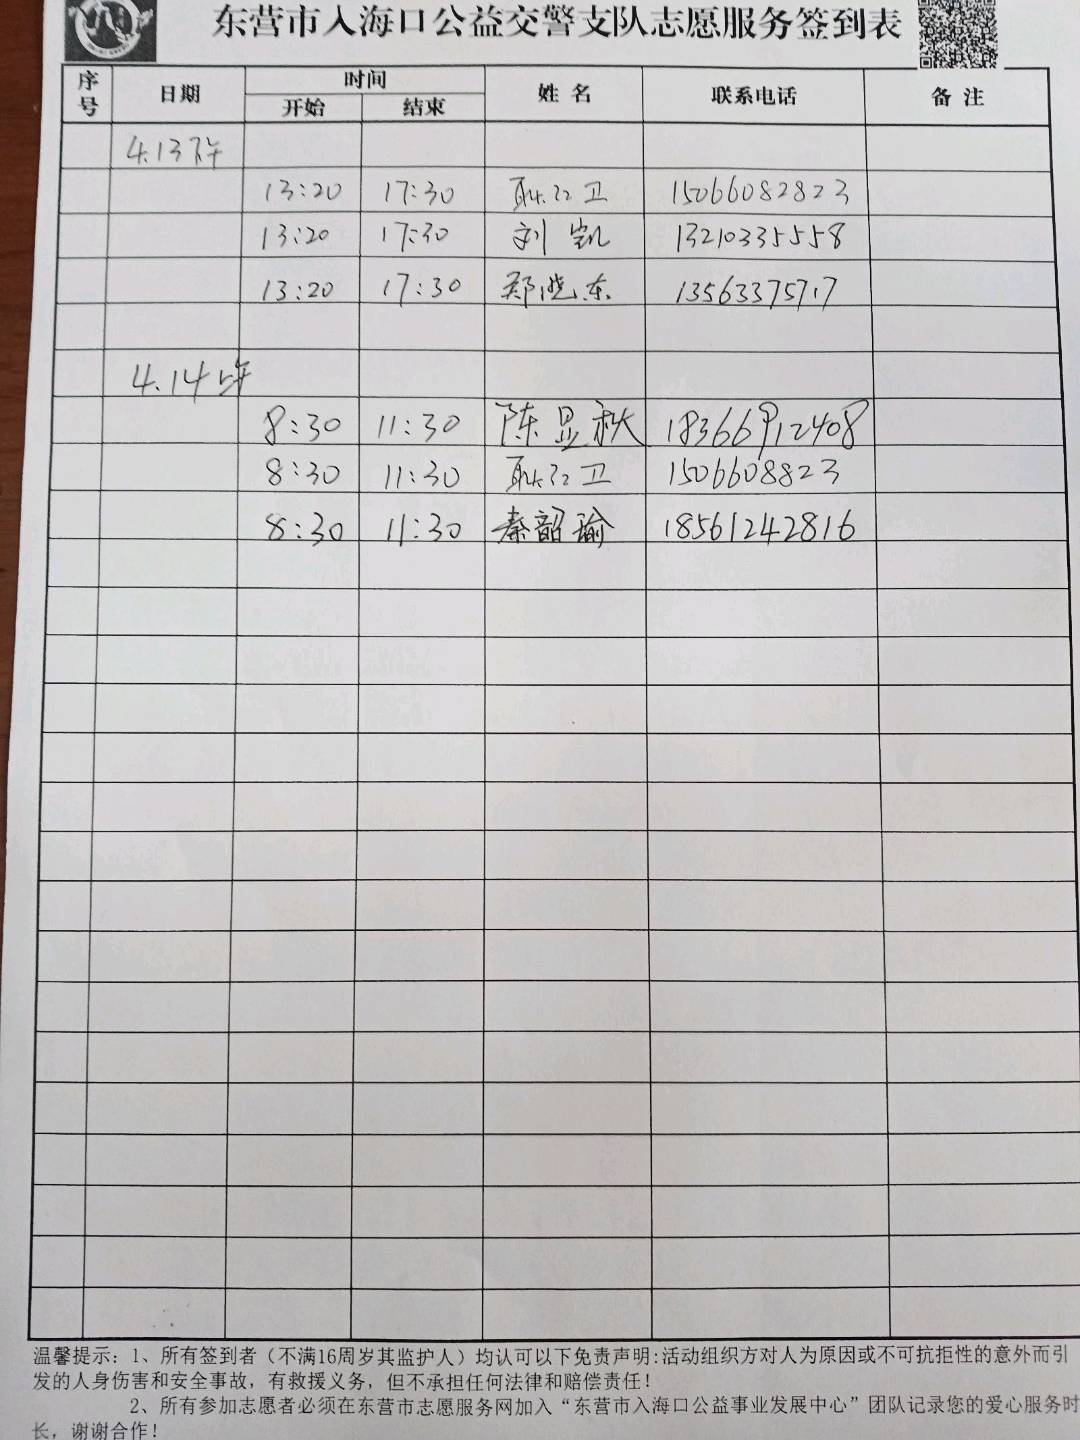 东营市入海口公益交警支队志愿服务签到表
序号 日期 时间 开始 结束 姓名 联系电话 备注
4.13下午
13:20 17:30 耿红卫 15066082823
13:20 17:30 刘凯 13210335558
13:20 17:30 郑晓东 13563375717
4.14上午
8:30 11:30 陈显秋 18366912408
8:30 11:30 耿红卫 1506608823
8:30 11:30 秦韶瑜 18561242816
温馨提示：1、所有签到者（不满16周岁其监护人）均认可以下免责声明:活动组织方对人为原因或不可抗拒性的意外而引
发的人身伤害和安全事故，有救援义务，但不承担任何法律和赔偿责任！
2、所有参加志愿者必须在东营市志愿服务网加入“东营市入海口公益事业发展中心”团队记录您的爱心服务时
长，谢谢合作！